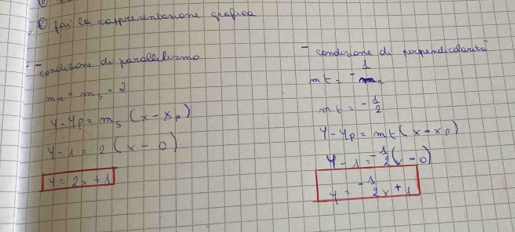 © fai la rappresentazione grafica
- condizione di parallelismo
mr = ms = 2
y-yp = ms (x-xp)
y-1 = 2 (x-0)
y = 2x+1
- condizione di perpendicolarità
mt = -1/mr
mt = -1/2
y-yp = mt (x-xp)
y-1 = -1/2 (x-0)
y = -1/2 x+1